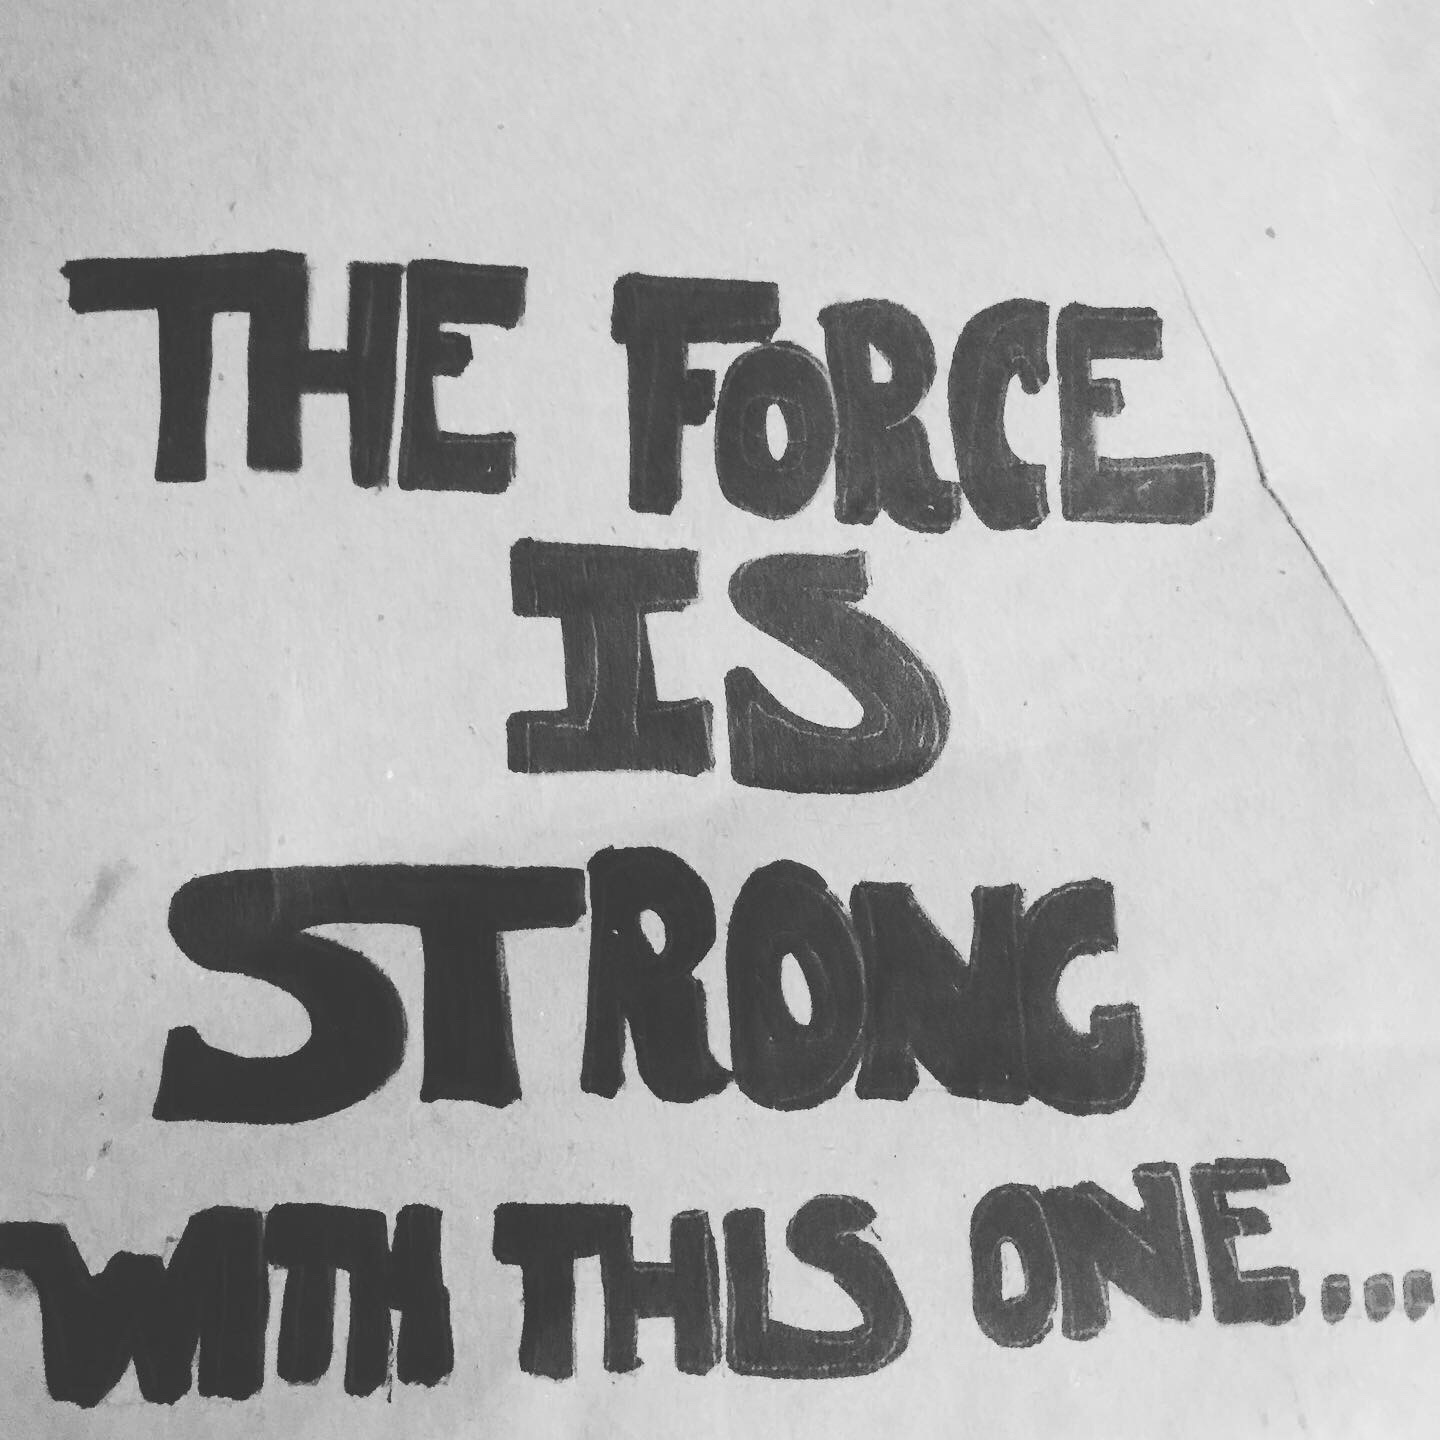 THE FORCE
IS
STRONG
WITH THIS ONE...